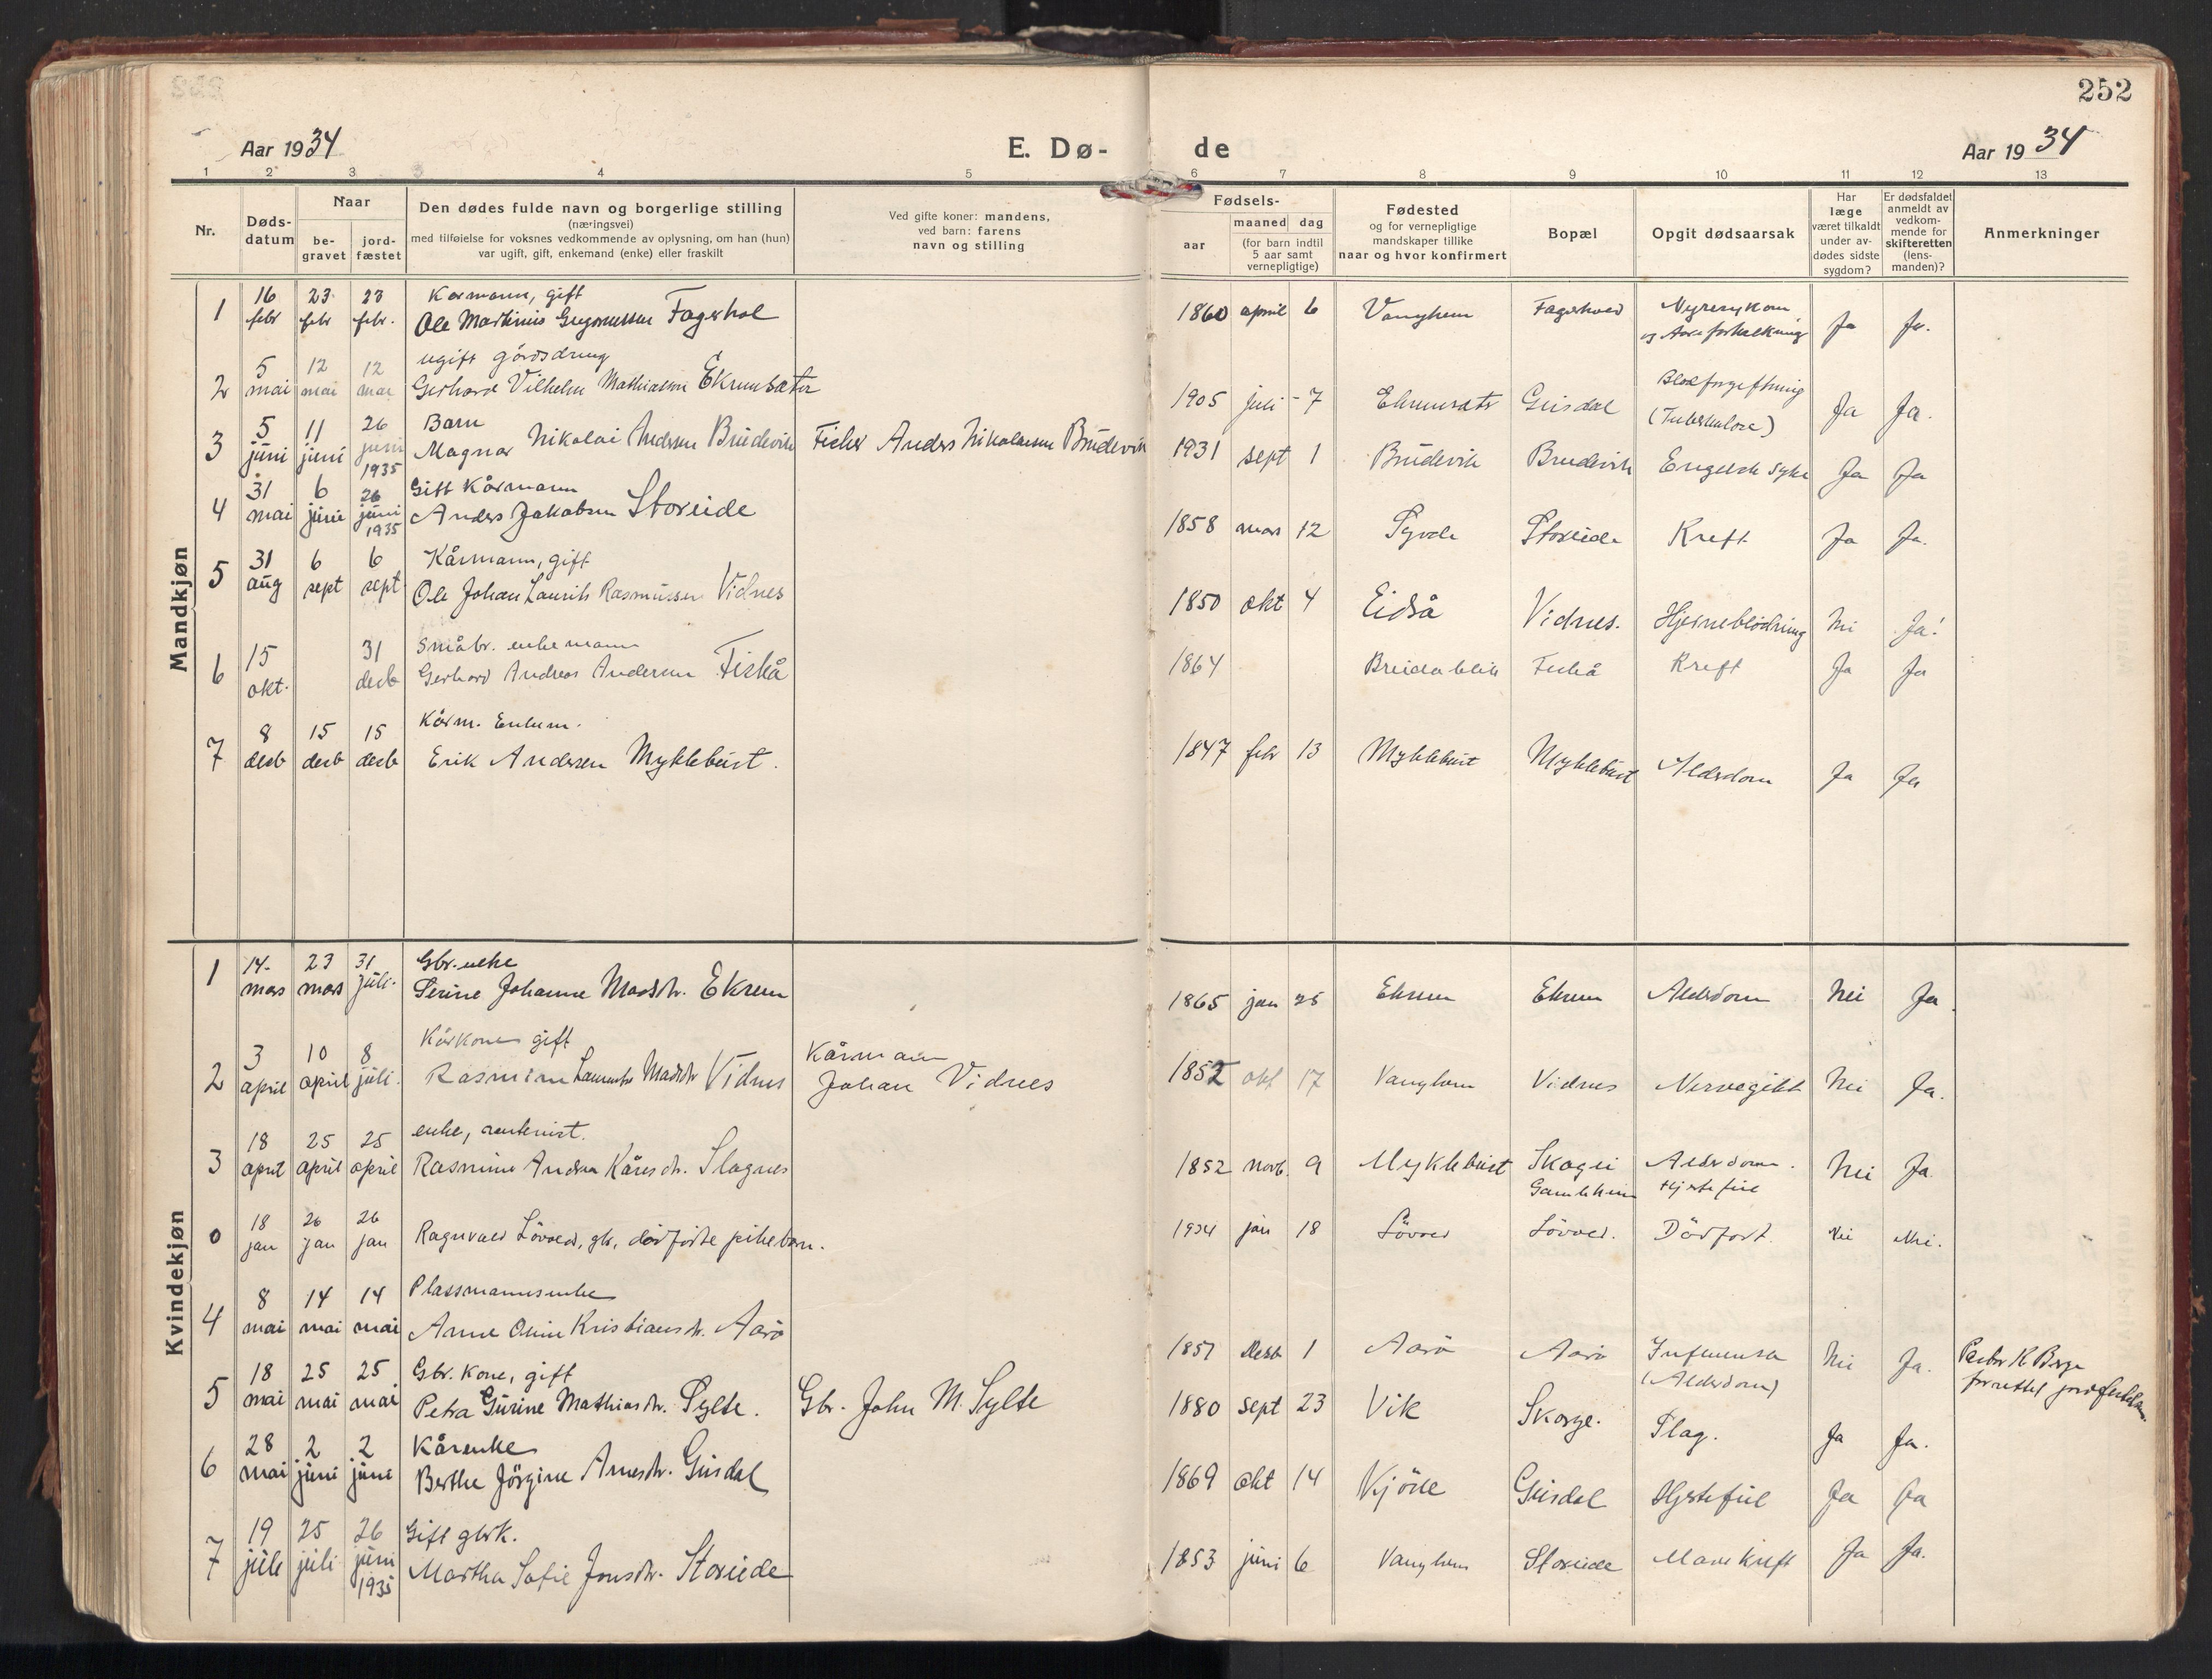 252
Aar 1934
E. Dø-
de
Aar 1934
1 2 3 4 5 6 7 8 9 10 11 12 13
Nr.
Døds-
datum
Naar
be-
gravet
jord-
fæstet
Den dødes fulde navn og borgerlige stilling
(næringsvei)
med tilføielse for voksnes vedkommende av oplysning, om han (hun)
var ugift, gift, enkemand (enke) eller fraskilt
Ved gifte koner: mandens,
ved barn: farens
navn og stilling
Fødsels-
aar
maaned dag
(for barn indtil
5 aar samt
vernepligtige)
Fødested
og for vernepligtige
mandskaper tillike
naar og hvor konfirmert
Bopæl
Opgit dødsaarsak
Har
læge
været tilkaldt
under av-
dødes sidste
sygdom?
Er dødsfaldet
anmeldt av
vedkom-
mende for
skifteretten
(lens-
manden)?
Anmerkninger
Mandkjøn
1 16 febr 23 febr 23 febr.
Kårmann, gift
Ole Martinus Gregoriussen Fagerhol
1860 april 6 Vanylven
og Aareforkalkning Ja Ja.
2 5 mai 12 mai 12 mai
ugift gårdsdreng
Gerhard Vilhelm Mathiassen Ekremsæter
1905 juli 7 Ekremsæter Gusdal
Blodforgiftning
(Tuberkulose) Ja Ja.
3 5 juni 11 juni 26 juni 1935
Barn
Magnar Nikolai Andersen Brudevik
Fisker Anders Nikolaisen Brudevik
1931 sept 1 Brudevik Brudevik Engelsk syke Ja Ja
4 31 mai 6 juni 26 juni 1935
Gift Kårmann
Anders Jakobsen Storeide
1858 mars 12 Syvde Storeide Kreft Ja Ja.
5 31 aug 6 sept 6 sept
Kårmann, gift
Ole Johan Laurits Rasmussen Vidnes
1850 okt 4 Eidså Vidnes. Hjerneblødning Nei Ja.
6 15 okt. 31 desb
Småbr. enkemann
Gerhard Andreas Andersen Fiskå
1864 Breidablik Fiskå Kreft Ja Ja
7 8 desb 15 desb 15 desb
Kårm. Enkem.
Erik Andersen Myklebust.
1847 febr 13 Myklebust Myklebust Alderdom Ja Ja
Kvindekjøn
1 14. mars 23 mars 31 juli.
Gbr. enke
Serine Johanne Madsdr. Ekrem
1865 jan 25 Ekrem Ekrem Alderdom Nei Ja.
2 3 april 10 april 8 juli.
Kårkone gift
Rasmine Laurentse Madsdr Vidnes
Kårmann
Johan Vidnes
1852 okt 17 Vanylven Vidnes Nervegikt Nei Ja.
3 18 april 25 april 25 april
enke, rentenist.
Rasmine Andrea Kåresdr. Slagnes
1852 novb. 9 Myklebust Skogei
Gamleheim
Alderdom.
Hjertefeil Nei Ja
0 18 jan 26 jan 26 jan
Ragnvald Løvoed, gb, dødfødte pikebarn.
1934 jan 18 Løvoed Løvoed. Dødfødt. Nei Nei.
4 8 mai 14 mai 14 mai
Plassmannsenke
Anne Oline Kristiansdr. Aarø
1851 desb 1 Aarø Aarø Influensa
(Alderdom) Nei Ja.
forrettet jordfestelsen.
5 18 mai 25 mai 25 mai
Gbr. kone, gift
Petra Gurine Mathiasdr. Sylte.
Gbr. John M. Sylte
1880 sept 23 Vik Skorge. Slag. Ja Ja.
6 28 mai 2 juni 2 juni
Kårenke
Berthe Jørgine Arnesdr. Gusdal
1869 okt 14 Kjøde Gusdal Hjertefeil Ja Ja
7 19 juli 25 juli 26 juni 1935
Gift gbrk.
Martha Sofie Jonsdr. Storeide
1853 juni 6 Vanylven Storeide Mavekreft Ja Ja.